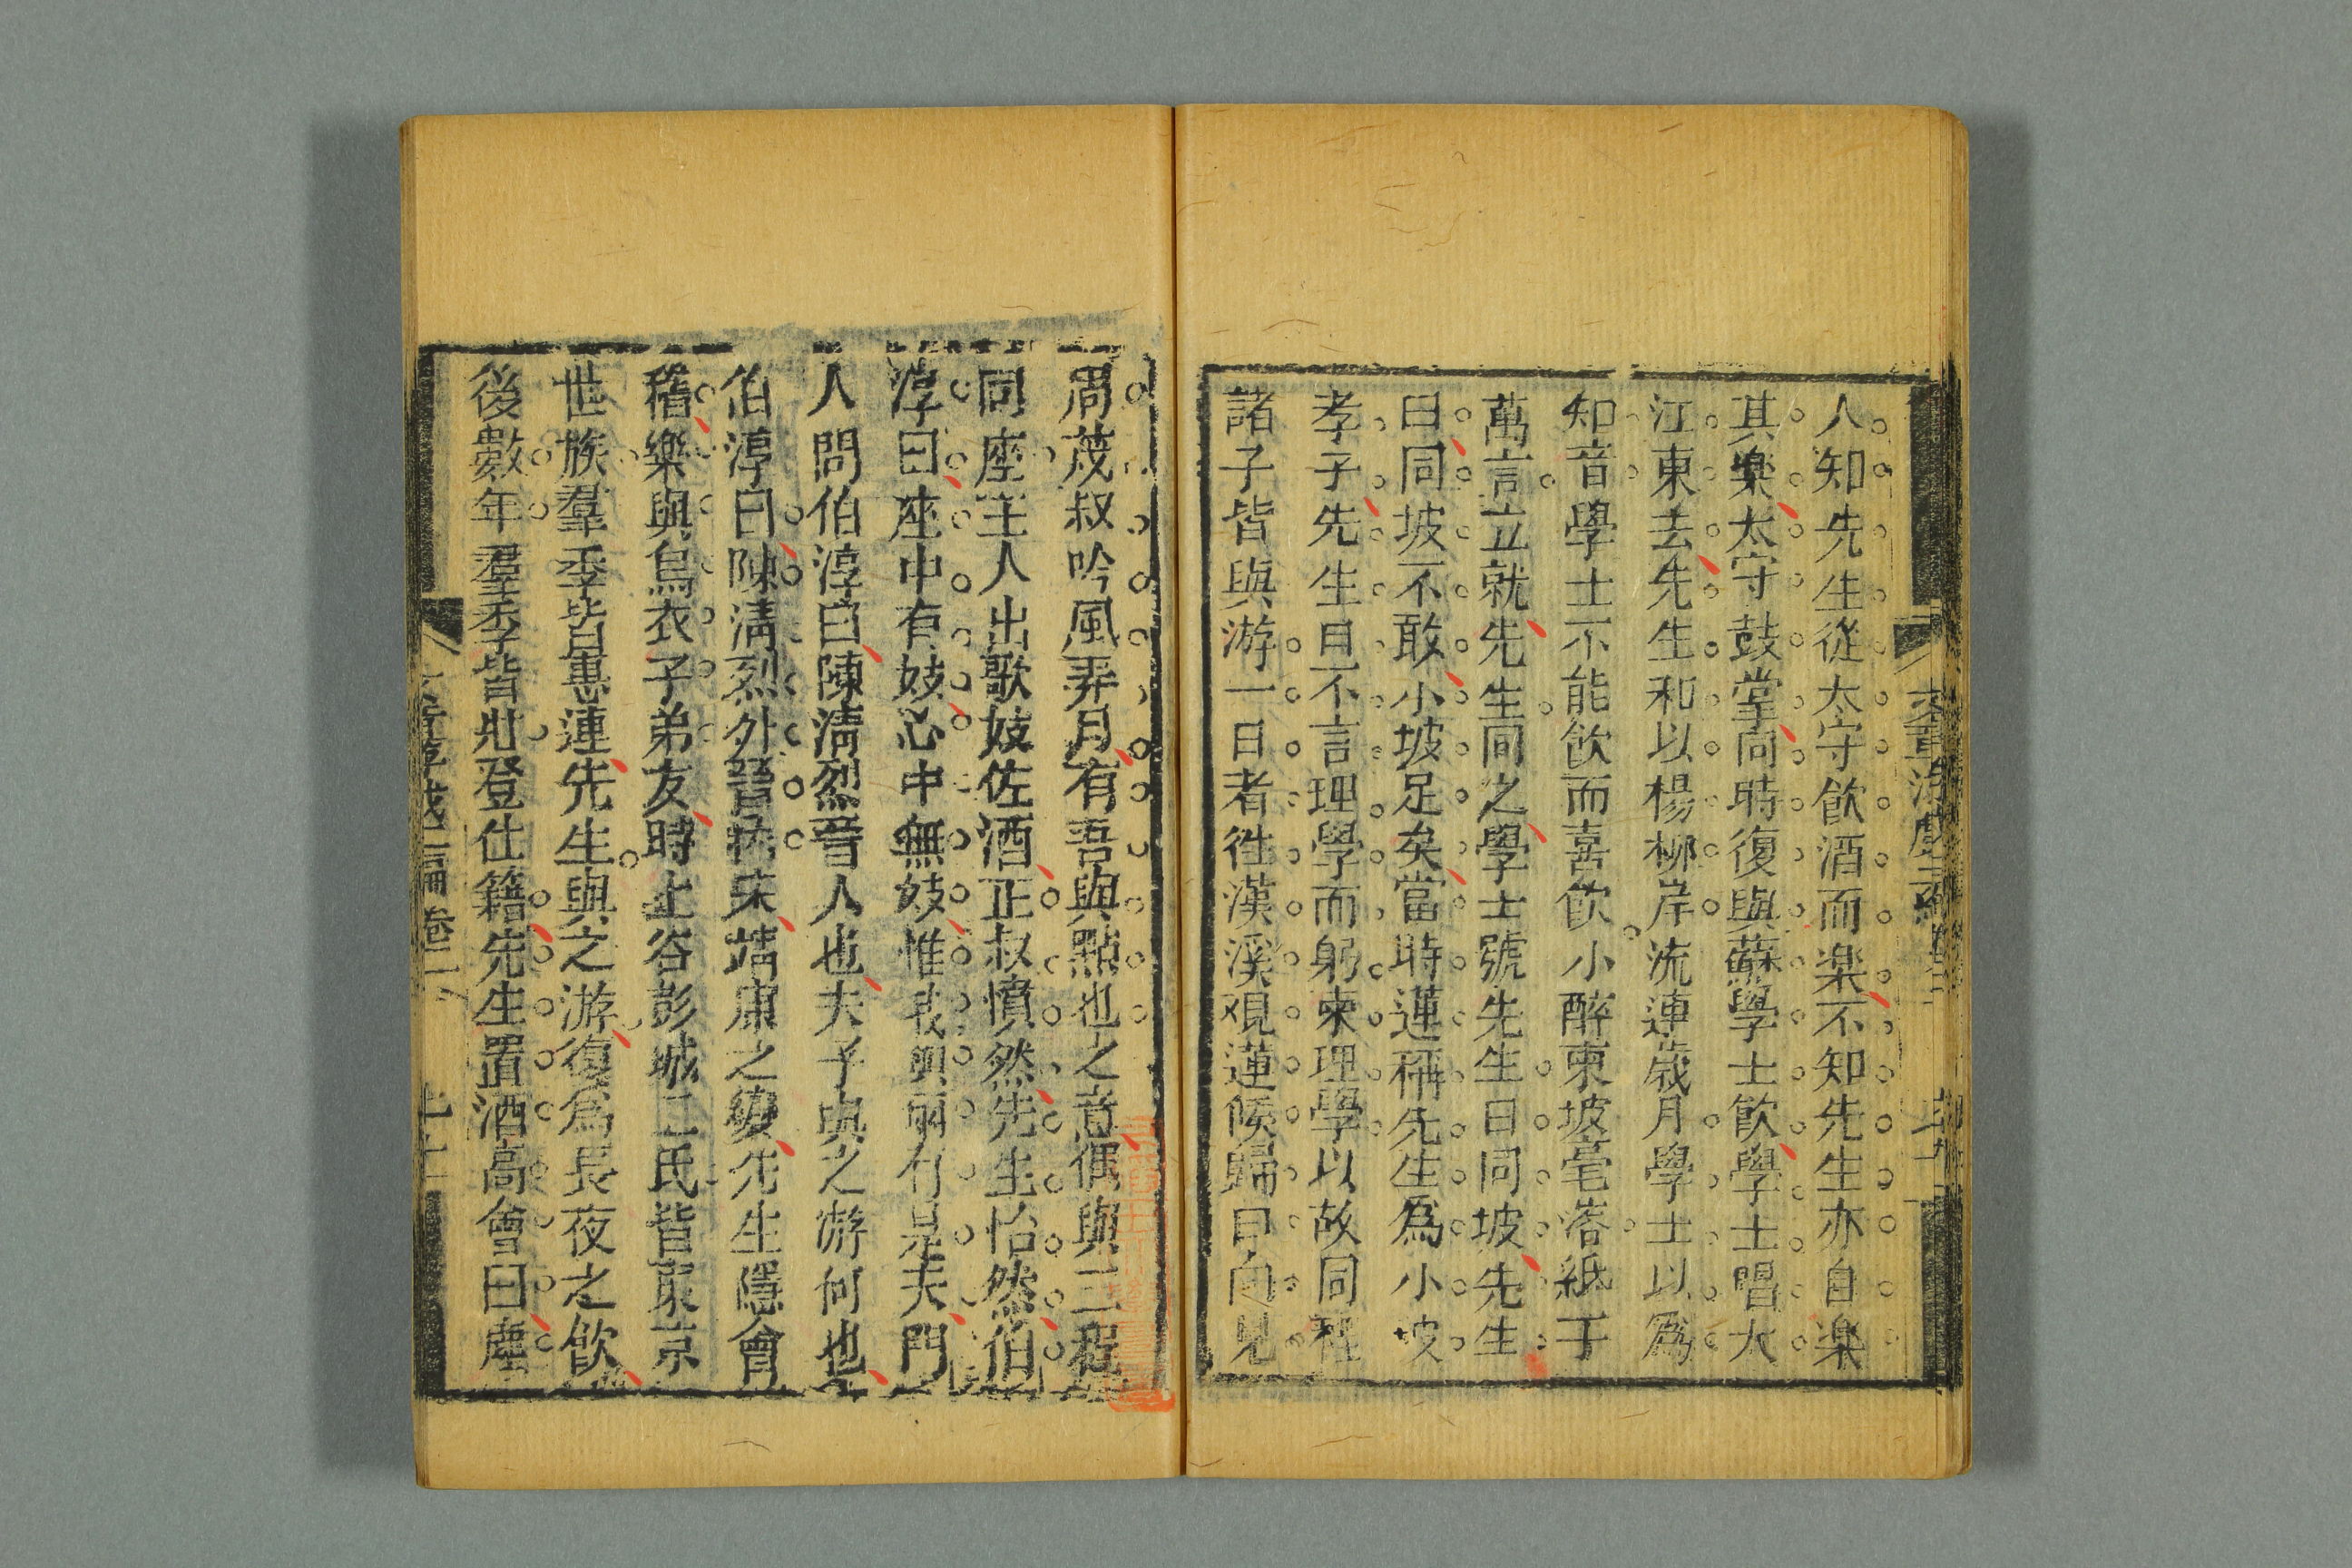 人知先生從太守飲酒而楽不知先生亦自楽
其楽太守鼓掌向時復與蘇學士飲學士唱大
江東去先生和以楊柳岸流連歳月學士以為
知音學士不能飲而喜飲小醉東坡毫落紙于
萬言立就先生同之學士號先生曰同坡先生
曰同坡不敢小坡足矣當時蓮稱先生為小坡
孝子先生日不言理學而躬東理學以故同
諸子皆與游一日者徃漢溪观蓮候歸曰向見
周茂叔吟風弄月有吾與點也之意偶與二程
同座主人出歌妓佐酒正叔憤然先生怡然伯
淳曰座中有妓心中無妓惟我與爾有是夫門
人問伯淳曰陳淸烈晉人也夫子與之游何也
伯淳曰陳淸烈外晉床靖康之變先生隱會
稽樂與烏衣子弟友時上谷彭城二氏皆聚京
世族羣季皆惠連先生與之游復為長夜之飲
後數年羣季皆壯登仕籍先生置酒高會曰塵
卷二